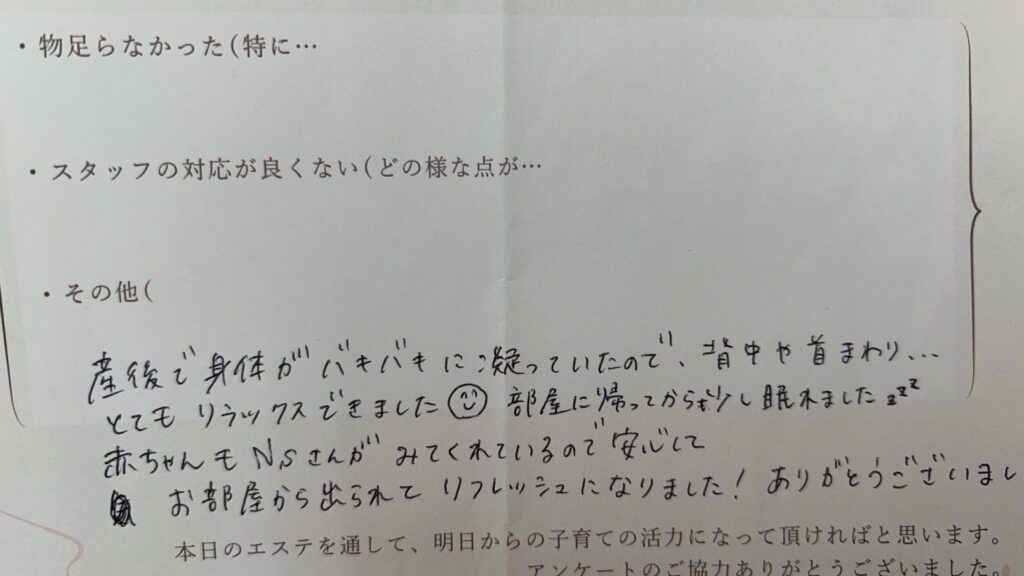 ・物足らなかった(特に…
・スタッフの対応が良くない(どの様な点が…
・その他(
産後で身体がバキバキに凝っていたので、背中や首まわり…
とてもリラックスできました☺ 部屋に帰ってからも少し眠れました zzz
赤ちゃんもNsさんがみてくれているので安心して
お部屋から出られてリフレッシュになりました！ありがとうございまし
本日のエステを通して、明日からの子育ての活力になって頂ければと思います。
アンケートのご協力ありがとうございました。